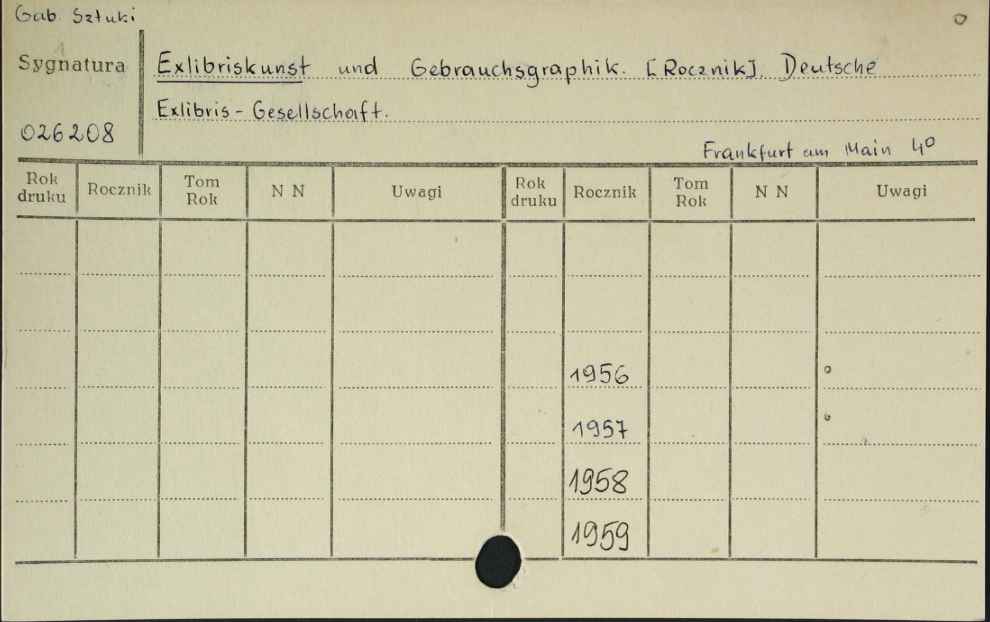 Gab. Sztuki
Sygnatura
026208
Exlibriskunst und Gebrauchsgraphik. [Rocznik]. Deutsche
Exlibris-Gesellschaft.
Frankfurt am Main 4°
Rok druku Rocznik Tom Rok N N Uwagi Rok druku Rocznik Tom Rok N N Uwagi
1956
1957
1958
1959